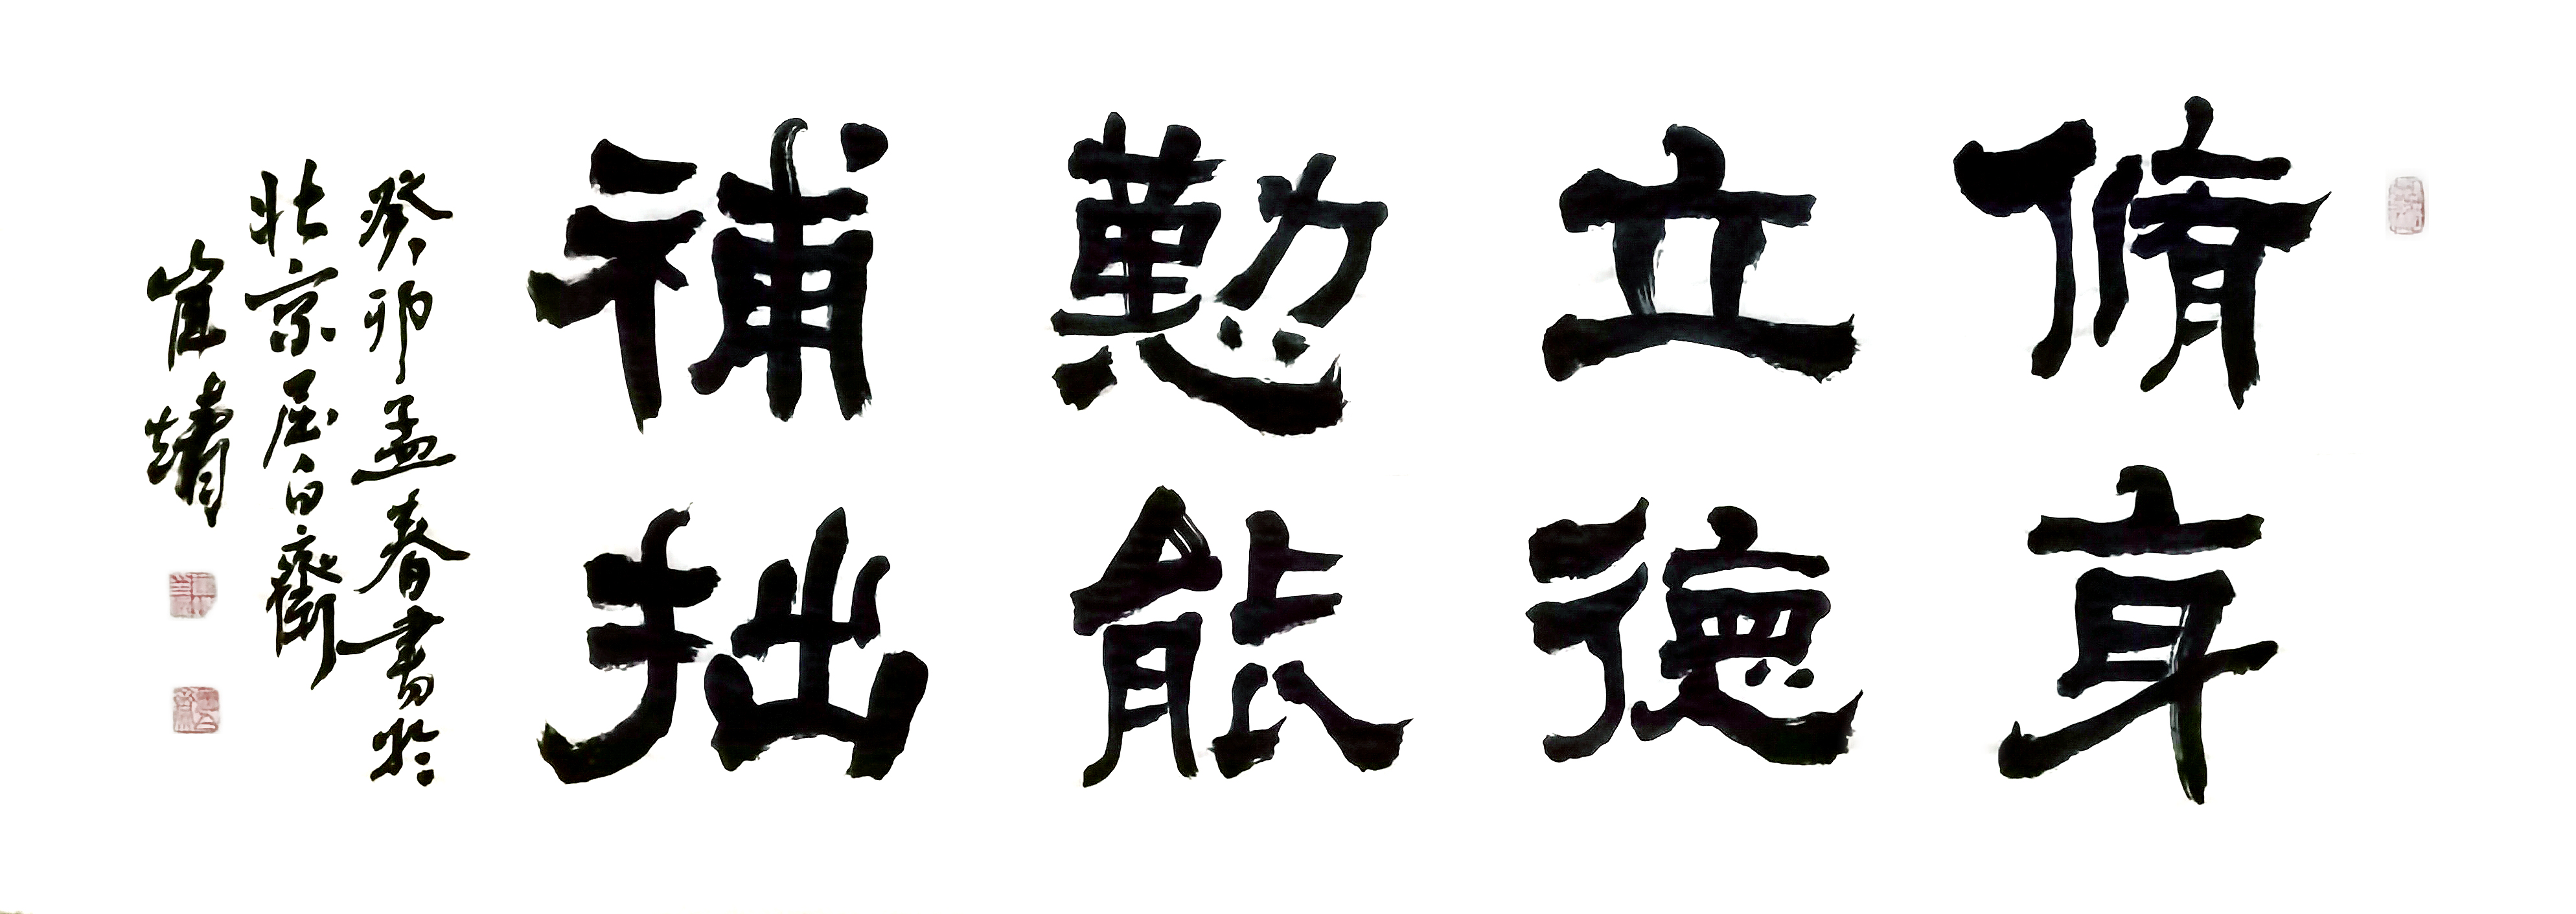 脩身
立德
懃能
補拙
癸卯孟春書於
北京居白齋
崔靖